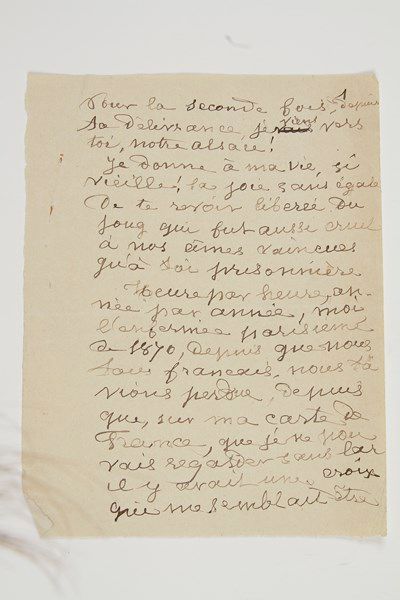 Pour la seconde fois, depuis
sa délivrance, je viens vers
toi, notre alsace!
Je donne à ma vie, si
vieille! la joie sans égale
De te revoir libérée du
joug qui fut aussi cruel
à nos âmes vaincues
qu'à toi prisonnière
Heure par heure, an-
née par année, moi
l'enfermée parisienne
de 1870, depuis que nous
tous français, nous t'a
vions perdue, depuis
que, sur ma carte de
France, que je ne pou
vais regarder sans
il y avait une croix
qui me semblait être